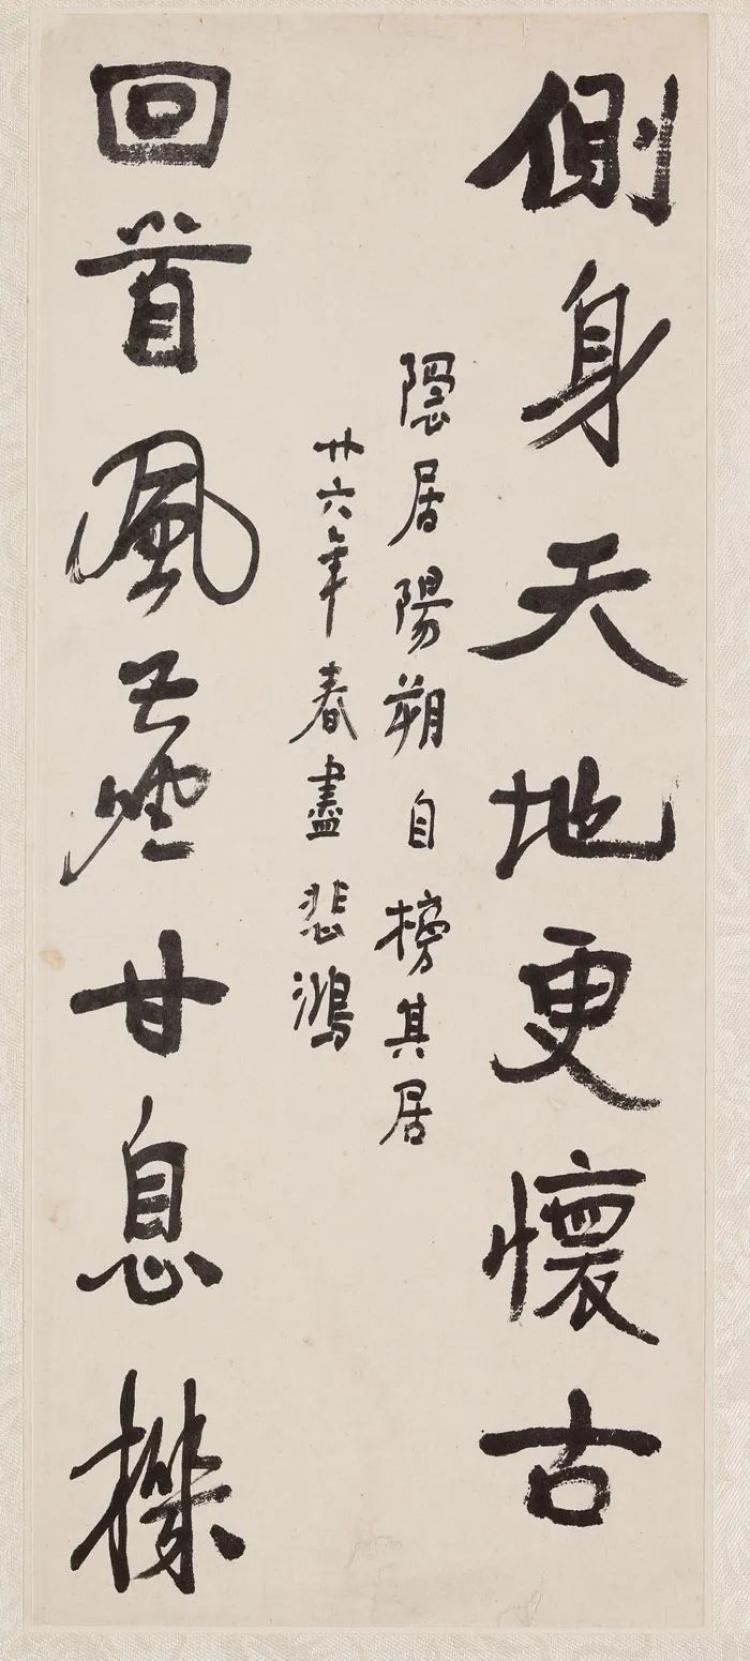 側身天地更懷古
隱居陽朔自榜其居
廿六年春盡悲鴻
回首風塵甘息機